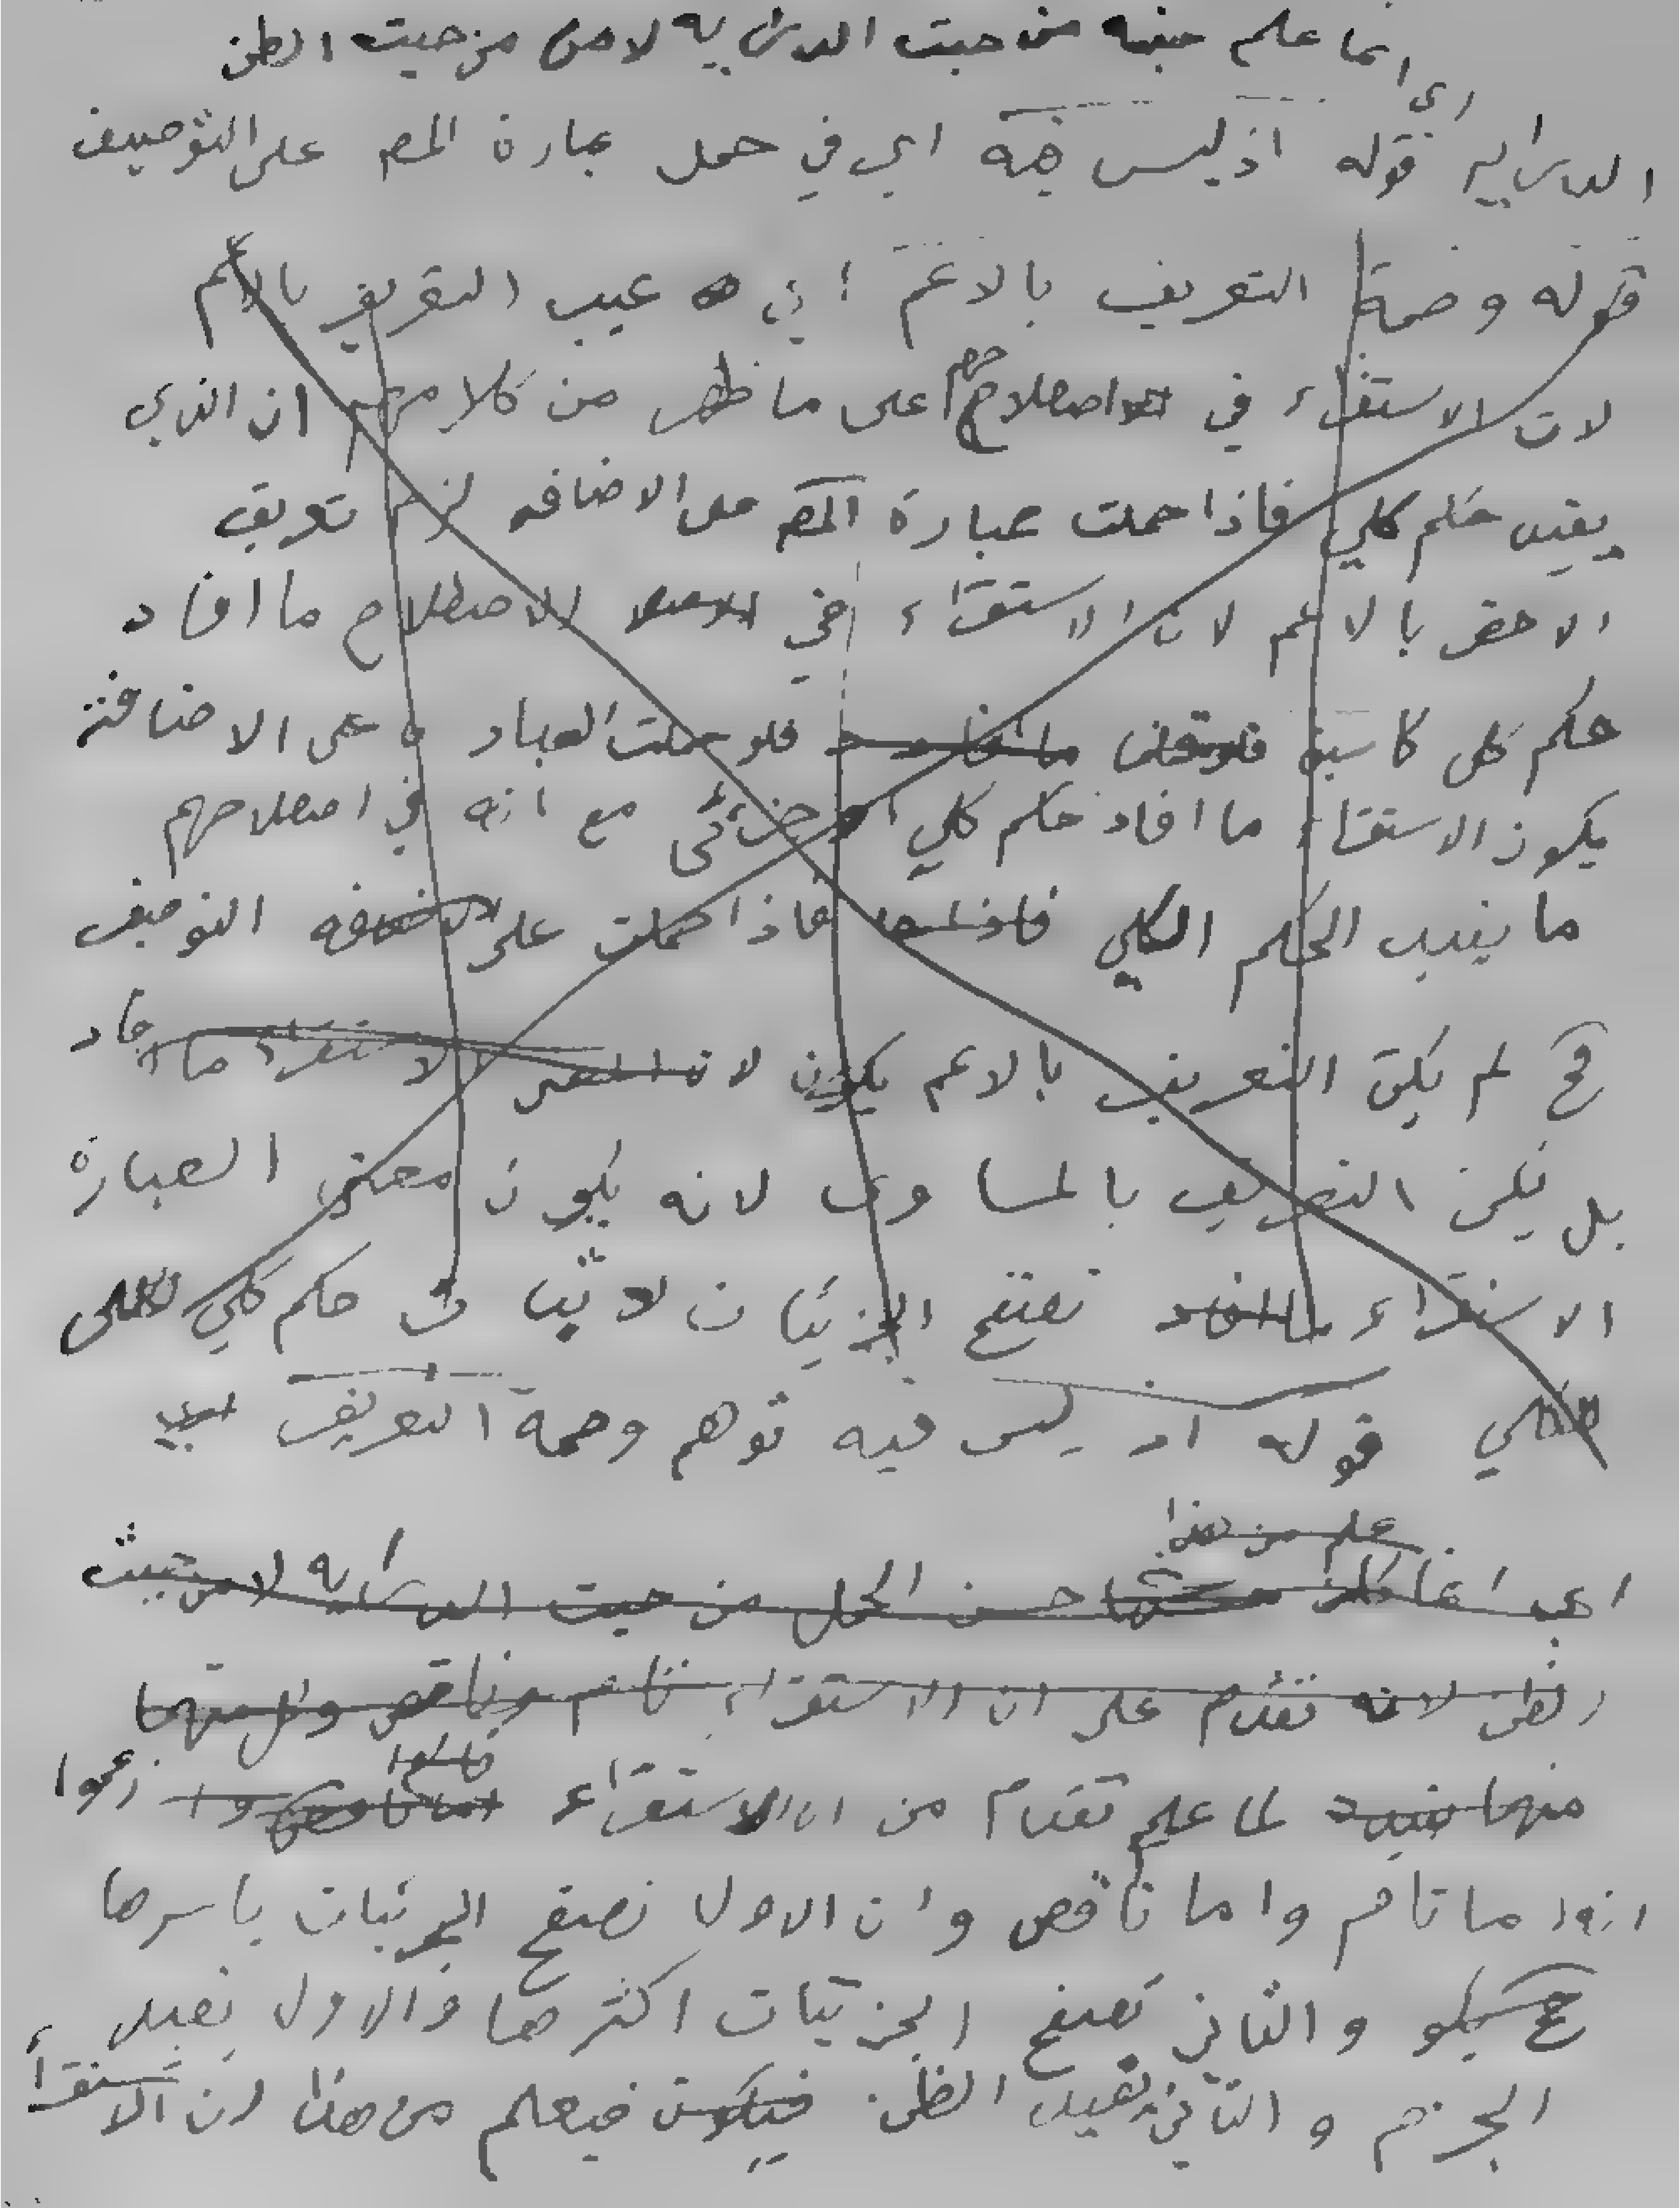 انما علم حينه من حيث الدراية لا من من حيث الظن
اي
الدراية قوله اذ ليس فيه اي في حمل عبارة المص على التوصيف
قوله وصمة التعريف بالاعم اي عيب التعريف بالاعم
لان الاستقراء في اصطلاحهم على ما ظهر من كلامهم ان الذي
يفيد حكم كلي فاذا حملت عبارة المص على الاضافه لزم تعريف
الاخص بالاعم لان الاستقراء في الاصطلاح ما افاد
حكم كلي كا سبق فلو حملت العبارة على الاضافة
يكون الاستقراء ما افاد حكم كلي او جزئي مع انه في اصطلاحهم
ما يفيد الحكم الكلي فاذا حملت على التوصيف
فح لم يكن التعريف بالاعم يكون لان الاستقراء ما افاد
بل يكن التعريف بالمساوى لانه يكون معنى العبارة
الاستقراء تصفح الجزئيات لاثبات حكم كلي
قوله اذ ليس فيه توهم وصمة التعريف
علم من هذا
اي انما حسن الحمل من حيث الدراية لا من حيث
الظن لانه تقدم على ان الاستقراء تام وناقص وكل منهما
قالوا
منهما يفيد لما علم تقدم من ان الاستقراء زعموا
انه اما تام واما ناقص وان الاول تصفح الجزئيات باسرها
والثاني تصفح الجزئيات اكثرها والاول يفيد
الجزم والثاني يفيد الظن فيكون فيعلم من هذا ان الاستقراء